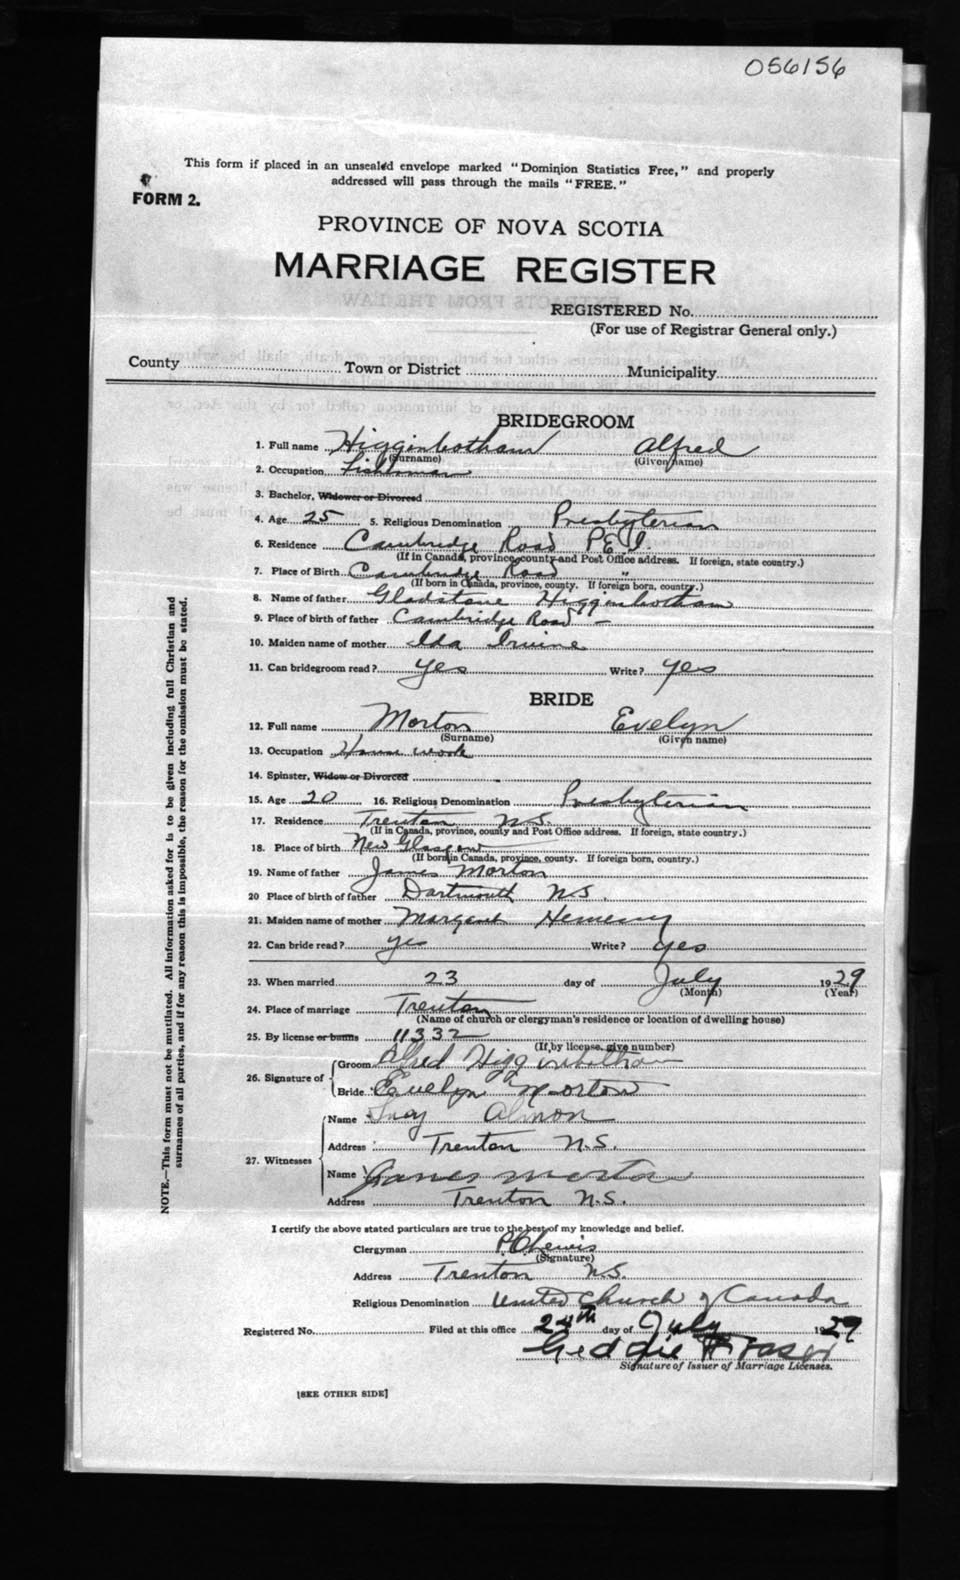 056156
This form if placed in an unsealed envelope marked "Dominion Statistics Free," and properly
addressed will pass through the mails "FREE."
FORM 2.
PROVINCE OF NOVA SCOTIA
MARRIAGE REGISTER
REGISTERED No.
(For use of Registrar General only.)
County Town or District Municipality
BRIDEGROOM
1. Full name Higginbotham Alfred
(Surname) (Given name)
2. Occupation Fisherman
3. Bachelor, Widower or Divorced
4. Age 25 5. Religious Denomination Presbyterian
6. Residence Cambridge Road P.E.I.
(If in Canada, province, county and Post Office address. If foreign, state country.)
7. Place of Birth Cambridge Road "
(If born in Canada, province, county. If foreign born, country.)
8. Name of father Gladstone Higginbotham
9. Place of birth of father Cambridge Road "
10. Maiden name of mother Ida Irvine
11. Can bridegroom read? yes Write? yes
BRIDE
12. Full name Morton Evelyn
(Surname) (Given name)
13. Occupation House work
14. Spinster, Widow or Divorced
15. Age 20 16. Religious Denomination Presbyterian
17. Residence Trenton N.S.
(If in Canada, province, county and Post Office address. If foreign, state country.)
18. Place of birth New Glasgow
(If born in Canada, province, county. If foreign born, country.)
19. Name of father James Morton
20 Place of birth of father Dartmouth N.S.
21. Maiden name of mother Margaret
22. Can bride read? yes Write? yes
23. When married 23 day of July 1929
(Month) (Year)
24. Place of marriage Trenton
(Name of church or clergyman's residence or location of dwelling house)
25. By license or banns 11332
(If by license, give number)
26. Signature of Groom Alfred Higginbotham
Bride Evelyn Morton
27. Witnesses Name Almon
Address Trenton N.S.
Name James Morton
Address Trenton N.S.
I certify the above stated particulars are true to the best of my knowledge and belief.
Clergyman P.C. Lewis
(Signature)
Address Trenton N.S.
Religious Denomination United Church of Canada
Registered No. Filed at this office 24th day of July 1929
Geddie Fraser
Signature of Issuer of Marriage Licenses.
[SEE OTHER SIDE]
NOTE.—This form must not be mutilated. All information asked for is to be given including full Christian and
surnames of all parties, and if for any reason this is impossible, the reason for the omission must be stated.